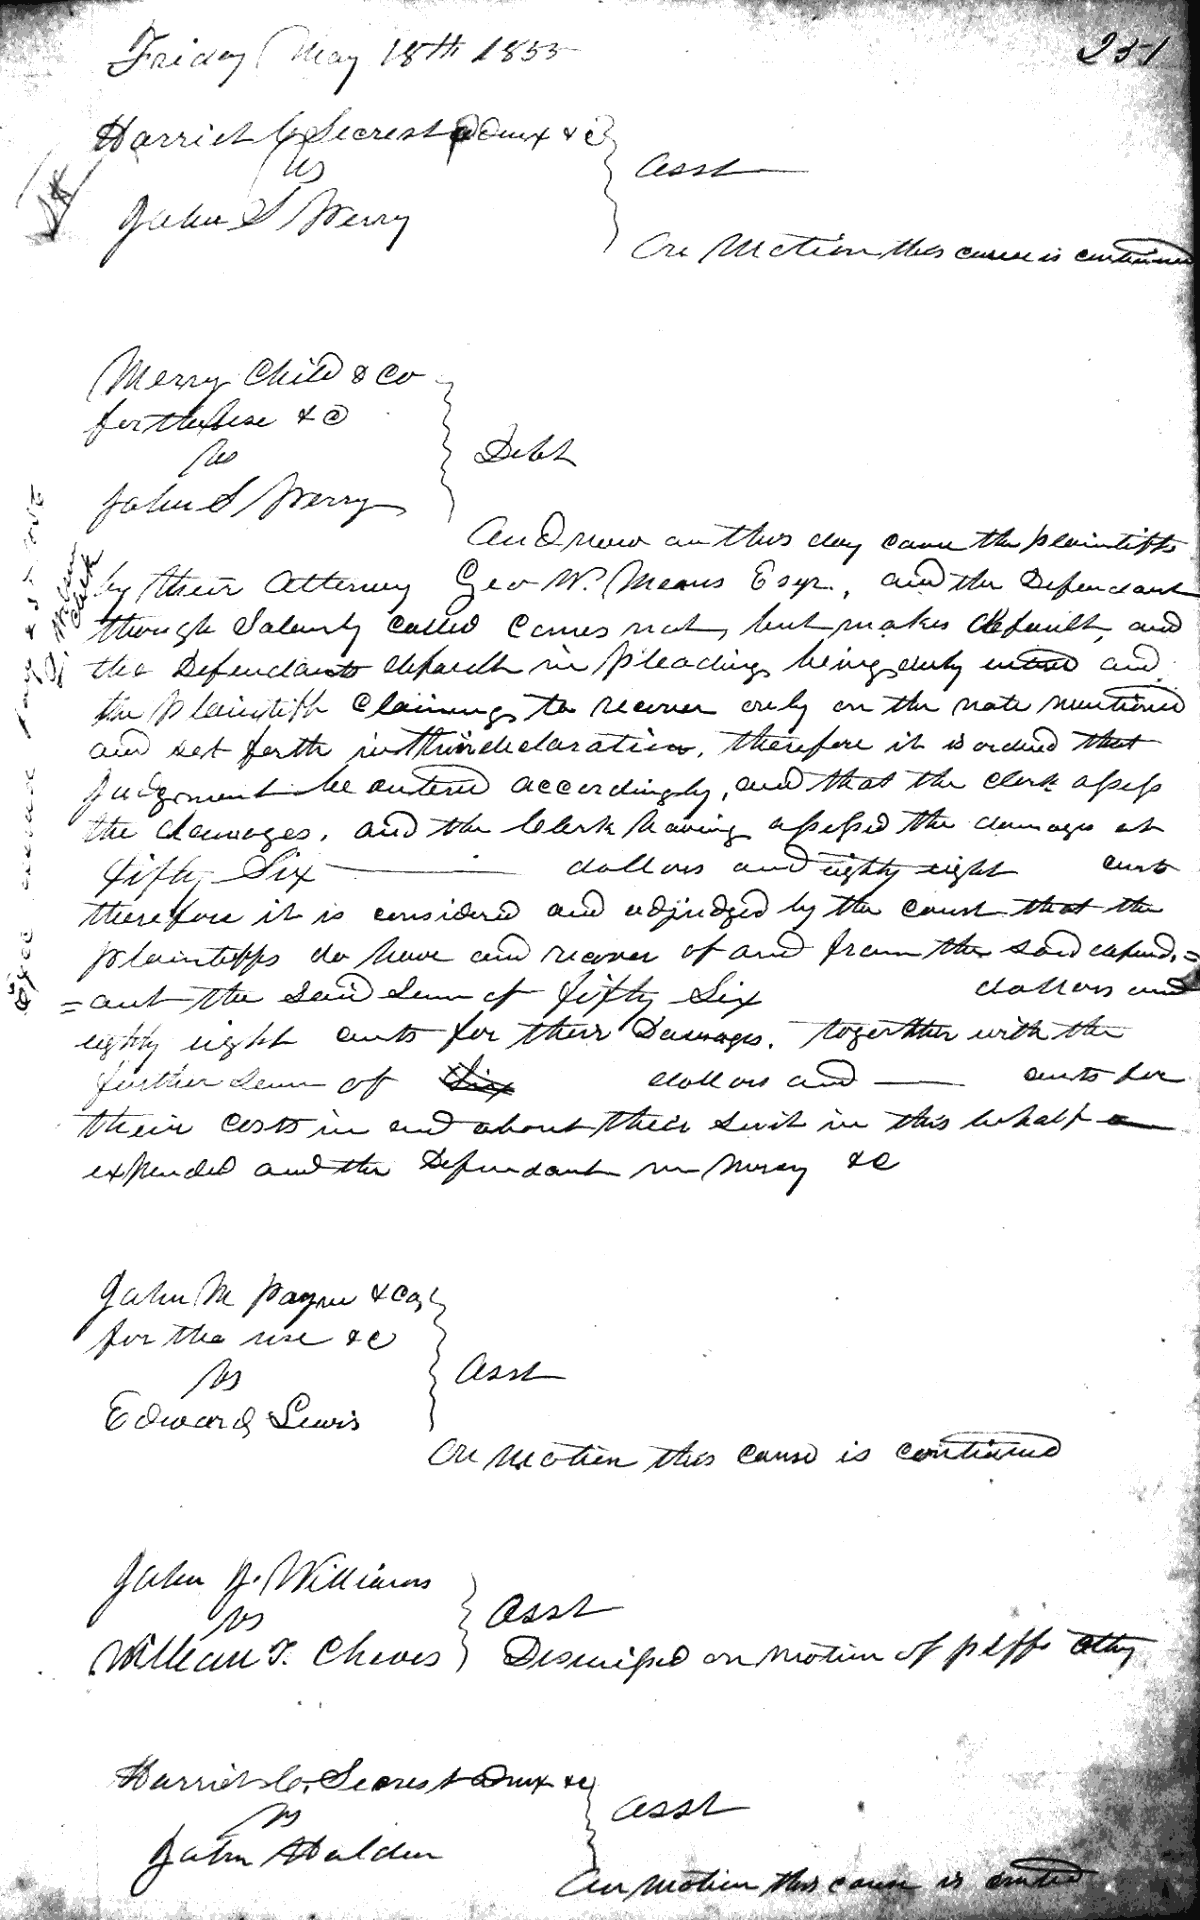 Friday May 18th 1855
251
Harriet C. Secrest admx & c
vs
John S Werry
asst
On Motion this cause is continued
Merry Child & Co
for the use & c
vs
John S Werry
Debt
And now on this day came the plaintiffs
by their Attorney Geo W. Means Esqr., and the Defendant
though Solemnly called comes not, but makes default, and
the Defendants default in pleading being duly entered and
the plaintiff claiming to recover only on the note mentioned
and set forth in their declaration, therefore it is ordered that
Judgment be entered accordingly, and that the clerk assess
the damages, and the Clerk having assessed the damages at
fifty Six dollars and eighty eight cents
therefore it is considered and adjudged by the court that the
plaintiffs do have and recover of and from the said defend=
=ant the said sum of fifty Six dollars and
eighty eight cents for their Damages. together with the
further sum of dollars and cents for
their costs in and about their suit in this behalf
expended and the Defendant in mercy &c
John M Payne & Co,
for the use & c
vs
Edward Lewis
asst
On Motion this cause is continued
John J. Williams
vs
William T. Cheves
asst
Dismissed on motion of plffs atty
Harriet C. Secrest admx & c
vs
John Halder
asst
On motion this cause is contd